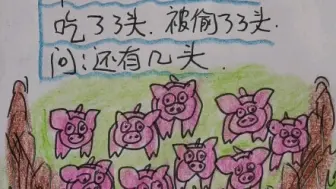 吃了3头.被偷了3头.
问:还有几头.